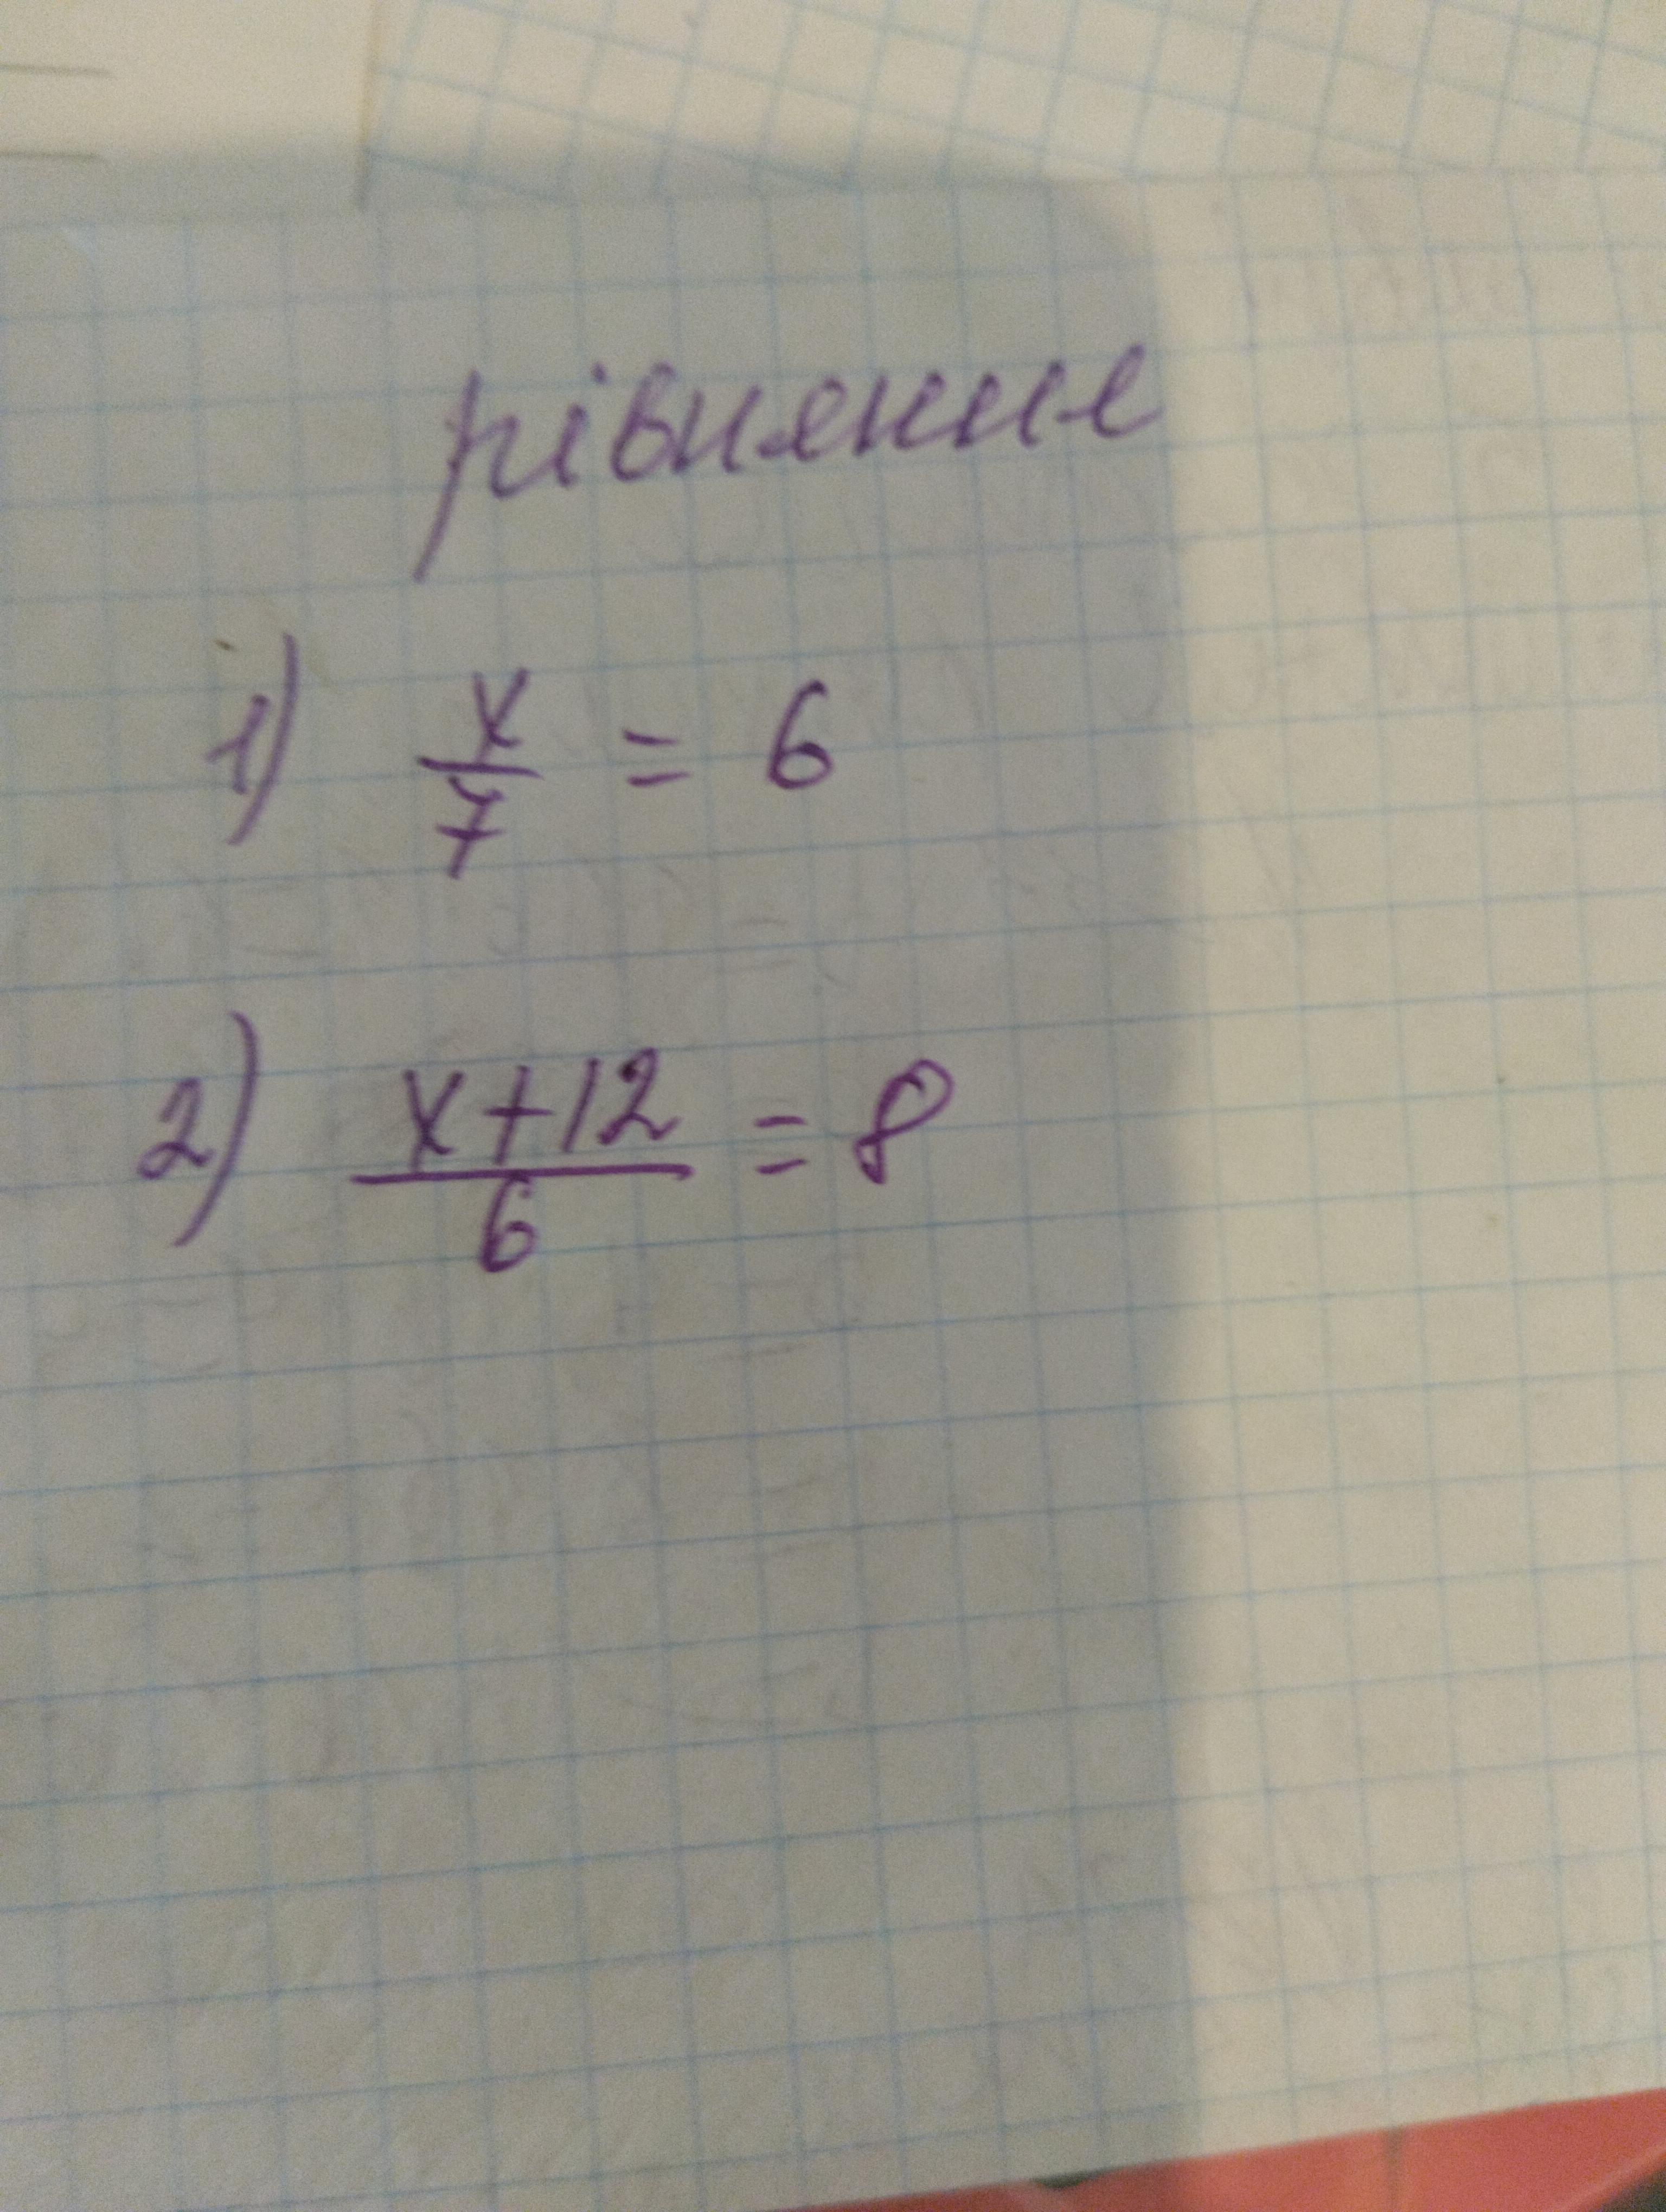 рівнение
1) x/7 = 6
2) x+12/6 = 8